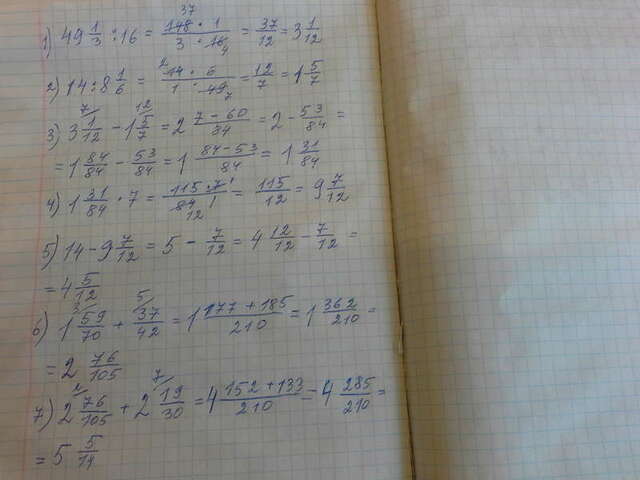 1) 49 1/3 : 16 = 148 · 1 / 3 · 16 = 37/12 = 3 1/12
37
4
2) 14 : 8 1/6 = 14 · 6 / 1 · 49 = 12/7 = 1 5/7
2
7
3) 3 1/12 - 1 5/7 = 2 7 - 60 / 84 = 2 - 53/84 =
7 12
= 1 84/84 - 53/84 = 1 84 - 53 / 84 = 1 31/84
4) 1 31/84 · 7 = 115 · 7 / 84 · 1 = 115/12 = 9 7/12
1
12
5) 14 - 9 7/12 = 5 - 7/12 = 4 12/12 - 7/12 =
= 4 5/12
6) 1 59/70 + 37/42 = 1 177 + 185 / 210 = 1 362/210 =
3 5
= 2 76/105
7) 2 76/105 + 2 19/30 = 4 152 + 133 / 210 = 4 285/210 =
2 7
= 5 5/14